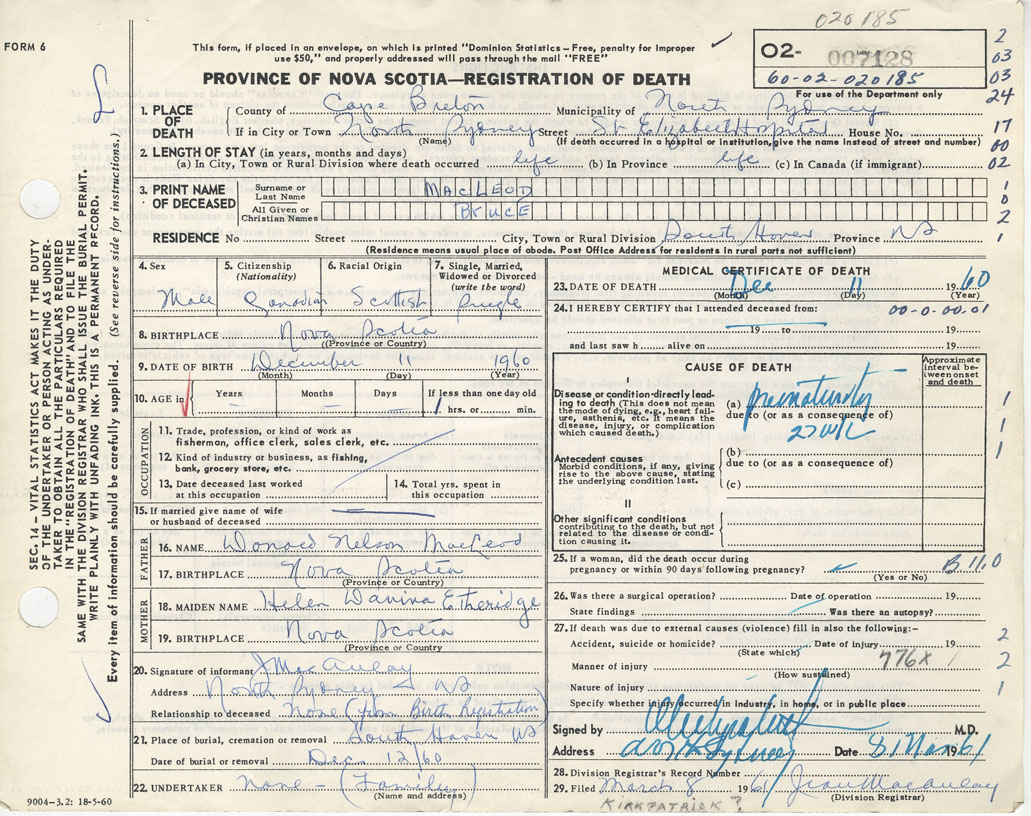 020185
FORM 6
This form, if placed in an envelope, on which is printed "Dominion Statistics—Free, penalty for improper
use $50," and properly addressed will pass through the mail "FREE"
PROVINCE OF NOVA SCOTIA—REGISTRATION OF DEATH
O2- 007128
60-02-020185
For use of the Department only
2
03
03
24
17
00
02
1
0
2
1
SEC. 14 – VITAL STATISTICS ACT MAKES IT THE DUTY
OF THE UNDERTAKER OR PERSON ACTING AS UNDER-
TAKER TO OBTAIN ALL THE PARTICULARS REQUIRED
IN THE "REGISTRATION OF DEATH" AND TO FILE THE
SAME WITH THE DIVISION REGISTRAR WHO SHALL ISSUE THE BURIAL PERMIT.
WRITE PLAINLY WITH UNFADING INK. THIS IS A PERMANENT RECORD.
Every item of information should be carefully supplied. (See reverse side for instructions.)
1. PLACE OF DEATH
County of Cape Breton Municipality of North Sydney
If in City or Town North Sydney Street St Elizabeth Hospital House No.
(Name) (If death occurred in a hospital or institution, give the name instead of street and number)
2. LENGTH OF STAY (in years, months and days)
(a) In City, Town or Rural Division where death occurred life (b) In Province life (c) In Canada (if immigrant)
3. PRINT NAME OF DECEASED
Surname or Last Name MACLEOD
All Given or Christian Names BRUCE
RESIDENCE No Street City, Town or Rural Division South Haven Province NS
(Residence means usual place of abode. Post Office Address for residents in rural parts not sufficient)
4. Sex
Male
5. Citizenship (Nationality)
Canadian
6. Racial Origin
Scottish
7. Single, Married, Widowed or Divorced (write the word)
Single
8. BIRTHPLACE Nova Scotia
(Province or Country)
9. DATE OF BIRTH December 11 1960
(Month) (Day) (Year)
10. AGE in Years Months Days If less than one day old
1 hrs. or min.
OCCUPATION
11. Trade, profession, or kind of work as
fisherman, office clerk, sales clerk, etc.
12. Kind of industry or business, as fishing,
bank, grocery store, etc.
13. Date deceased last worked
at this occupation
14. Total yrs. spent in
this occupation
15. If married give name of wife
or husband of deceased
FATHER
16. NAME Donald Nelson MacLeod
17. BIRTHPLACE Nova Scotia
(Province or Country)
MOTHER
18. MAIDEN NAME Helen Etheridge
19. BIRTHPLACE Nova Scotia
(Province or Country)
20. Signature of informant J MacAulay
Address North Sydney NS
Relationship to deceased None (from Birth Registration)
21. Place of burial, cremation or removal South Haven NS
Date of burial or removal Dec 12/60
22. UNDERTAKER None – (Family)
(Name and address)
9004–3.2: 18-5-60
MEDICAL CERTIFICATE OF DEATH
23. DATE OF DEATH Dec 11 1960
(Month) (Day) (Year)
24. I HEREBY CERTIFY that I attended deceased from: 00-0.00.01
19 to 19
and last saw h alive on 19
CAUSE OF DEATH
Approximate interval between onset and death
I
Disease or condition directly lead-
ing to death (This does not mean
the mode of dying, e.g., heart fail-
ure, asthenia, etc. It means the
disease, injury, or complication
which caused death.)
(a) prematurity
due to (or as a consequence of)
27 wk
Antecedent causes
Morbid conditions, if any, giving
rise to the above cause, stating
the underlying condition last.
(b)
due to (or as a consequence of)
(c)
II
Other significant conditions
contributing to the death, but not
related to the disease or condi-
tion causing it.
1
1
1
25. If a woman, did the death occur during
pregnancy or within 90 days following pregnancy?
(Yes or No)
B 11,0
26. Was there a surgical operation? Date of operation 19
State findings Was there an autopsy?
27. If death was due to external causes (violence) fill in also the following:–
Accident, suicide or homicide? Date of injury 19
(State which)
776X 1
Manner of injury
(How sustained)
Nature of injury
Specify whether injury occurred in industry, in home, or in public place
2
2
1
Signed by M.D.
Address Sydney Date 8 Mar 1961
28. Division Registrar's Record Number
29. Filed March 8 1961 Jean MacAulay
(Division Registrar)
KIRKPATRICK?